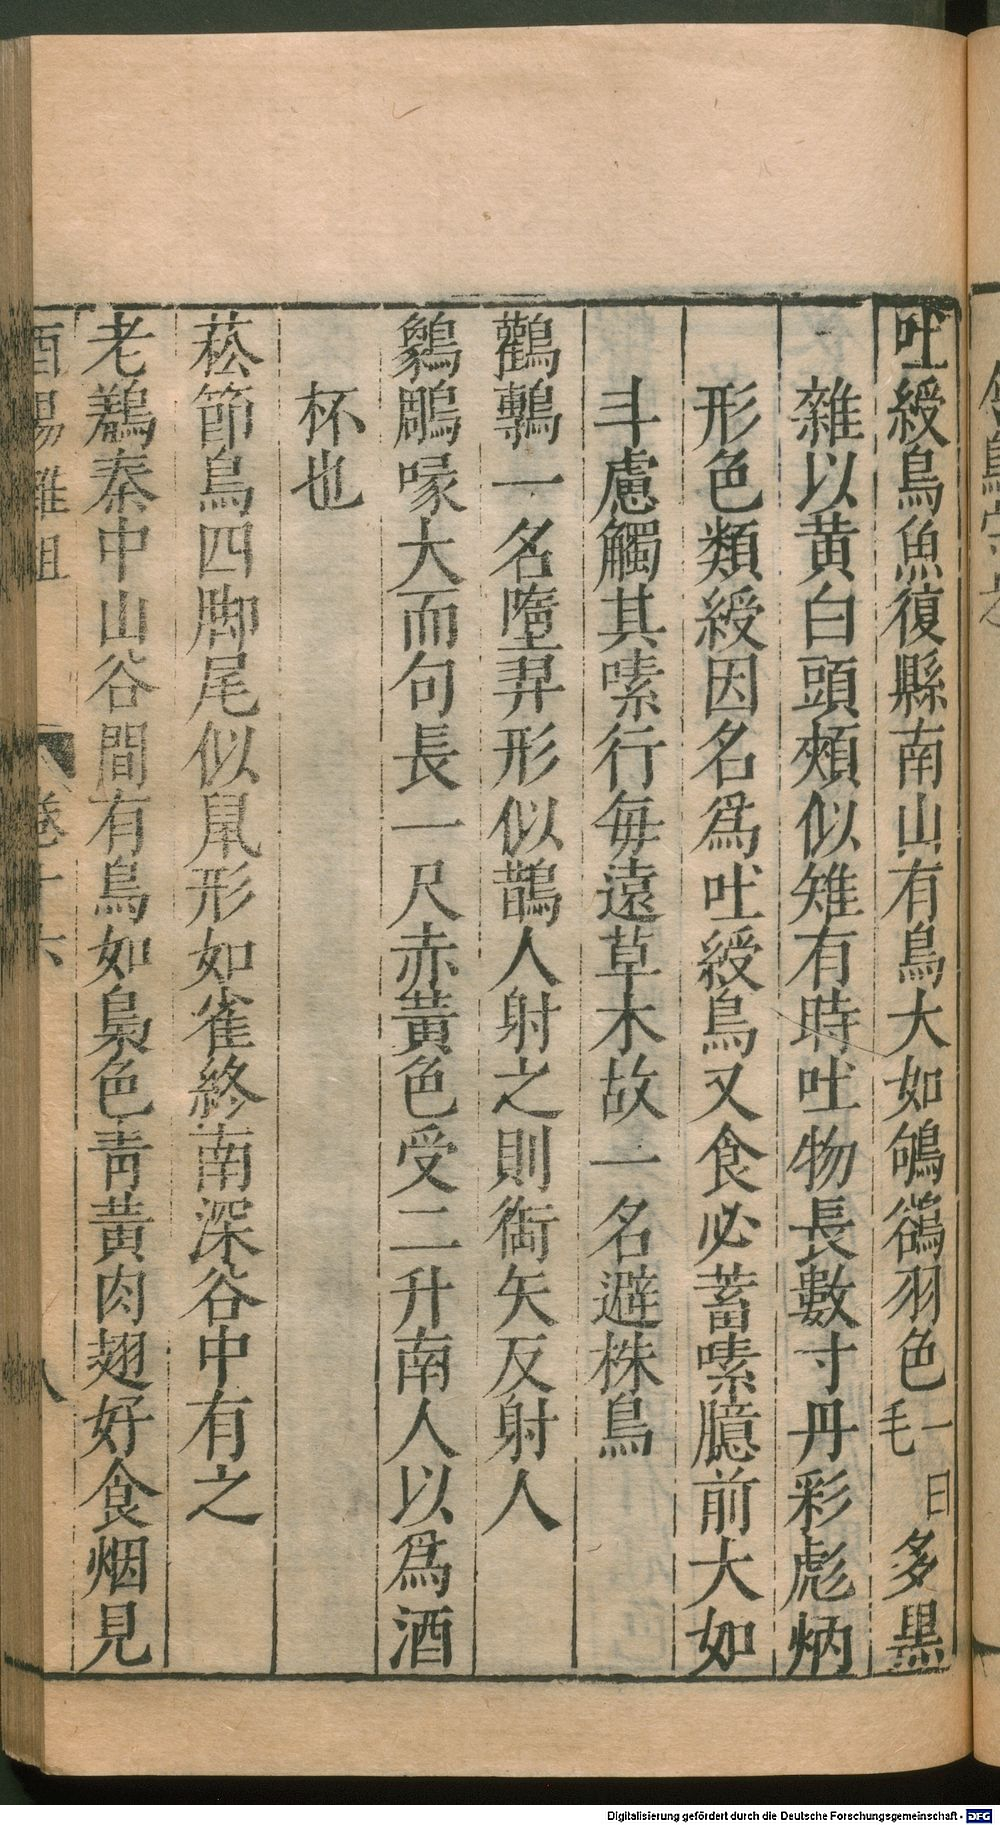 吐綬鳥魚復縣南山有鳥大如鴝鵒羽色一曰毛多黑
雜以黄白頭頰似雉有時吐物長數寸丹彩彪炳
形色類綬因名爲吐綬鳥又食必蓄嗉臆前大如
斗慮觸其嗉行每遠草木故一名避株鳥
鸛鷒一名墮羿形似鵲人射之則銜矢反射人
鷚鵰喙大而句長一尺赤黃色受二升南人以爲酒
杯也
菘節鳥四脚尾似鼠形如雀終南深谷中有之
老鵵秦中山谷間有鳥如梟色靑黃肉翅好食烟見
酉陽雜俎
卷十六
八
Digitalisierung gefördert durch die Deutsche Forschungsgemeinschaft - DFG